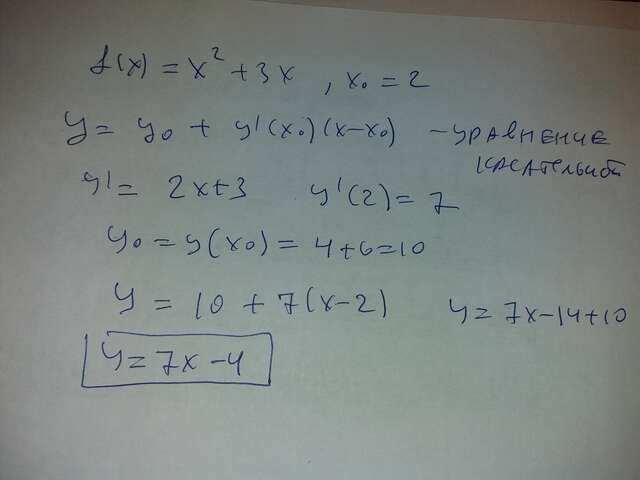 f(x) = x² + 3x , x₀ = 2
y = y₀ + y'(x₀)(x-x₀) - уравнение
касательной
y' = 2x+3 y'(2) = 7
y₀ = y(x₀) = 4+6=10
y = 10 + 7(x-2) y = 7x-14+10
y = 7x-4